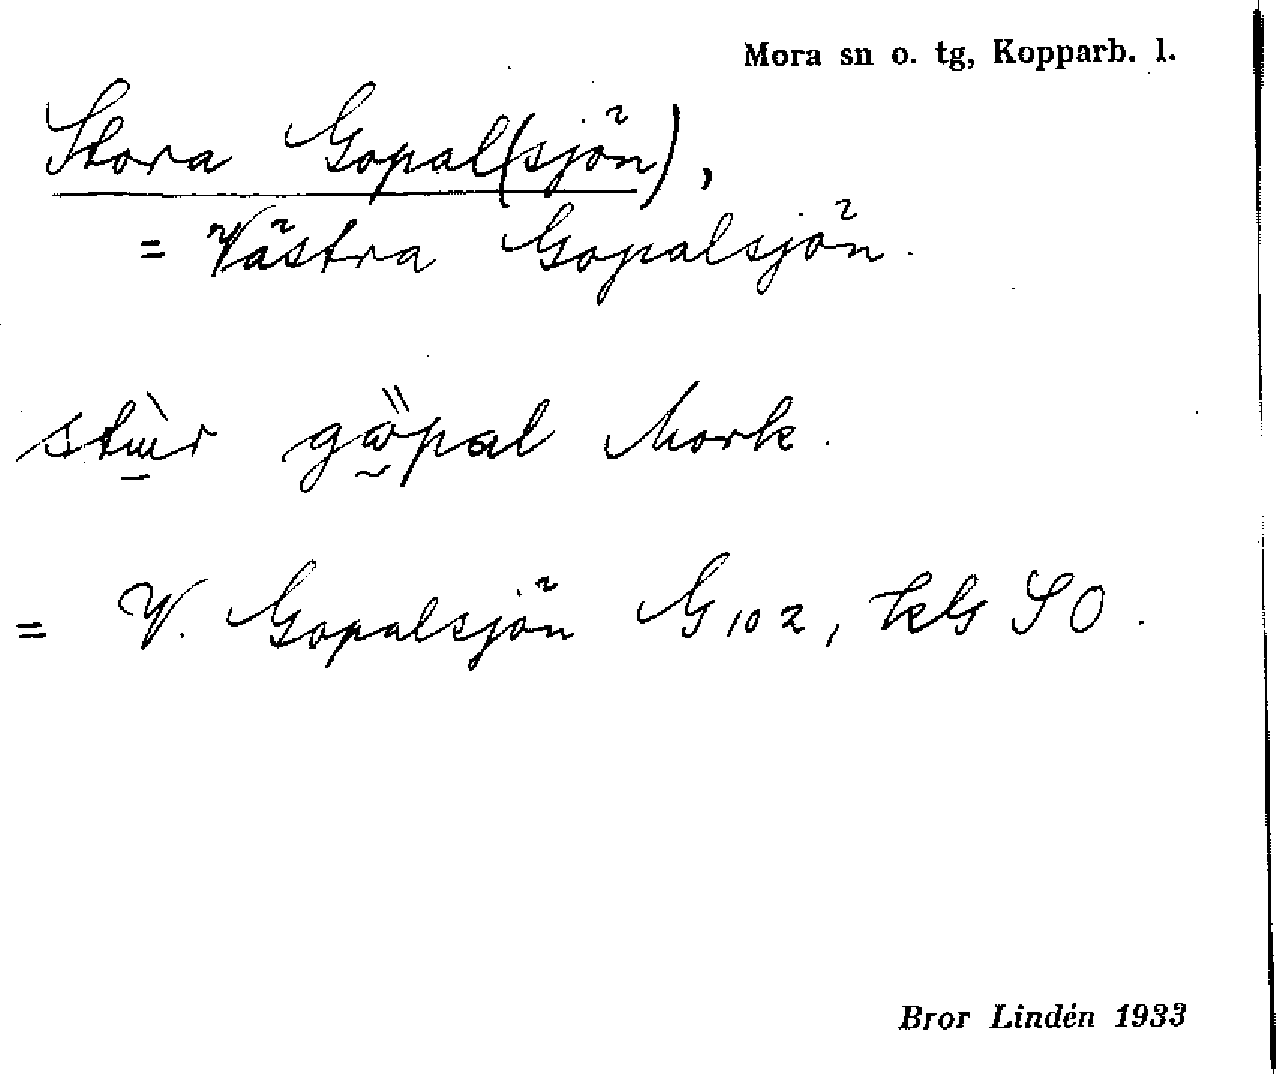 Mora sn o. tg, Kopparb. l.
Stora Gopal(sjön),
= Västra Gopalsjön.
gopal Mork.
= V. Gopalsjön G102, kls SO.
Bror Lindén 1933